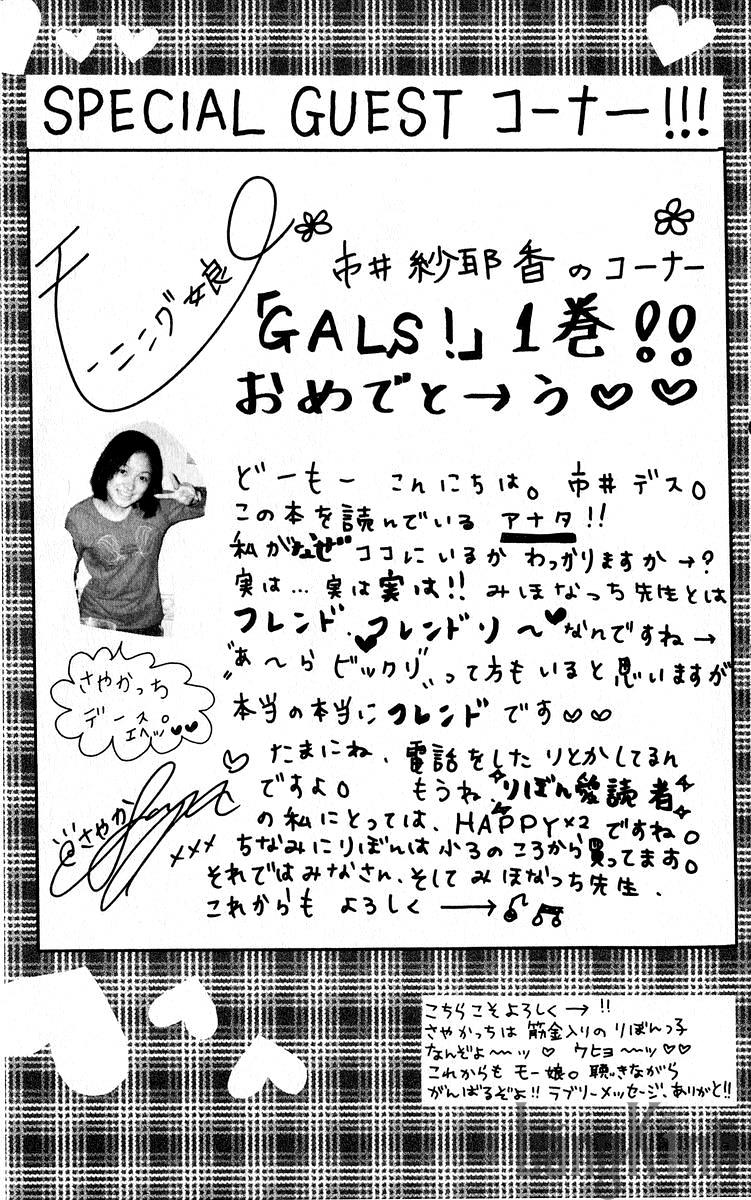 SPECIAL GUEST コーナー!!!
モーニング娘
市井紗耶香のコーナー
「GALS!」1巻!!
おめでと→う♡♡
どーもー こんにちは。市井デス。
この本を読んでいる アナタ!!
私がなぜ ココにいるか わっかりますか→?
実は…実は実は!! みほなっち先生とは
フレンド、フレンドリ〜♥なんですね→♥
"あ〜ら ビックリ"って方もいると思いますが
本当の本当にフレンドです♡♡
さやかっち
デース。
エヘッ♡♡
♡たまにね、電話をしたりとかしてるん
ですよ。 もうね、りぼん愛読者
の私にとっては、HAPPY×2ですね。
ちなみにりぼんは小3のころから買ってます。
それではみなさん、そしてみほなっち先生、
これからも よろしく→♪♫
@さやか
×××
こちらこそよろしく→!!
さやかっちは 筋金入りの りぼんっ子
なんぞよ〜〜ッ♡ ウヒョ〜〜ッ♡♡
これからも モー娘。聴きながら
がんばるぞよ!! ラブリーメッセージ、ありがと!!